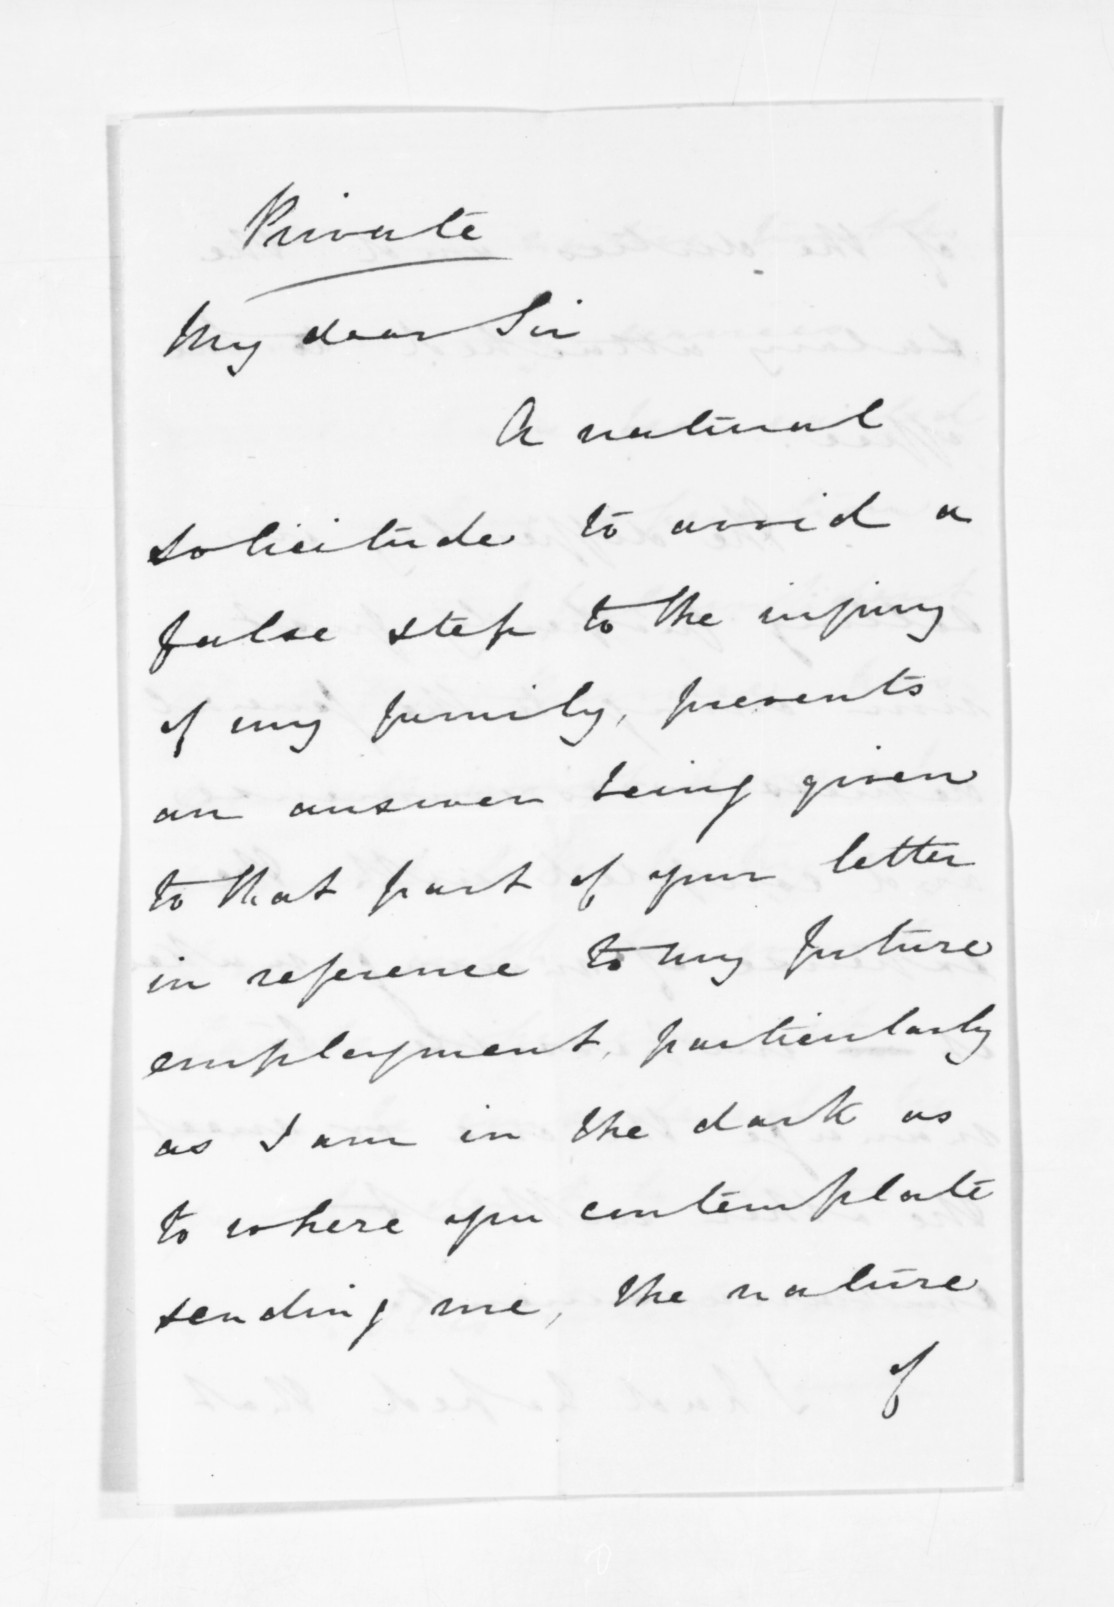 Private
My dear Sir
A natural
solicitude to avoid a
false step to the injury
of my family, prevents
an answer being given
to that part of your letter
in reference to my future
employment, particularly
as I am in the dark as
to where you contemplate
sending me, the nature
of